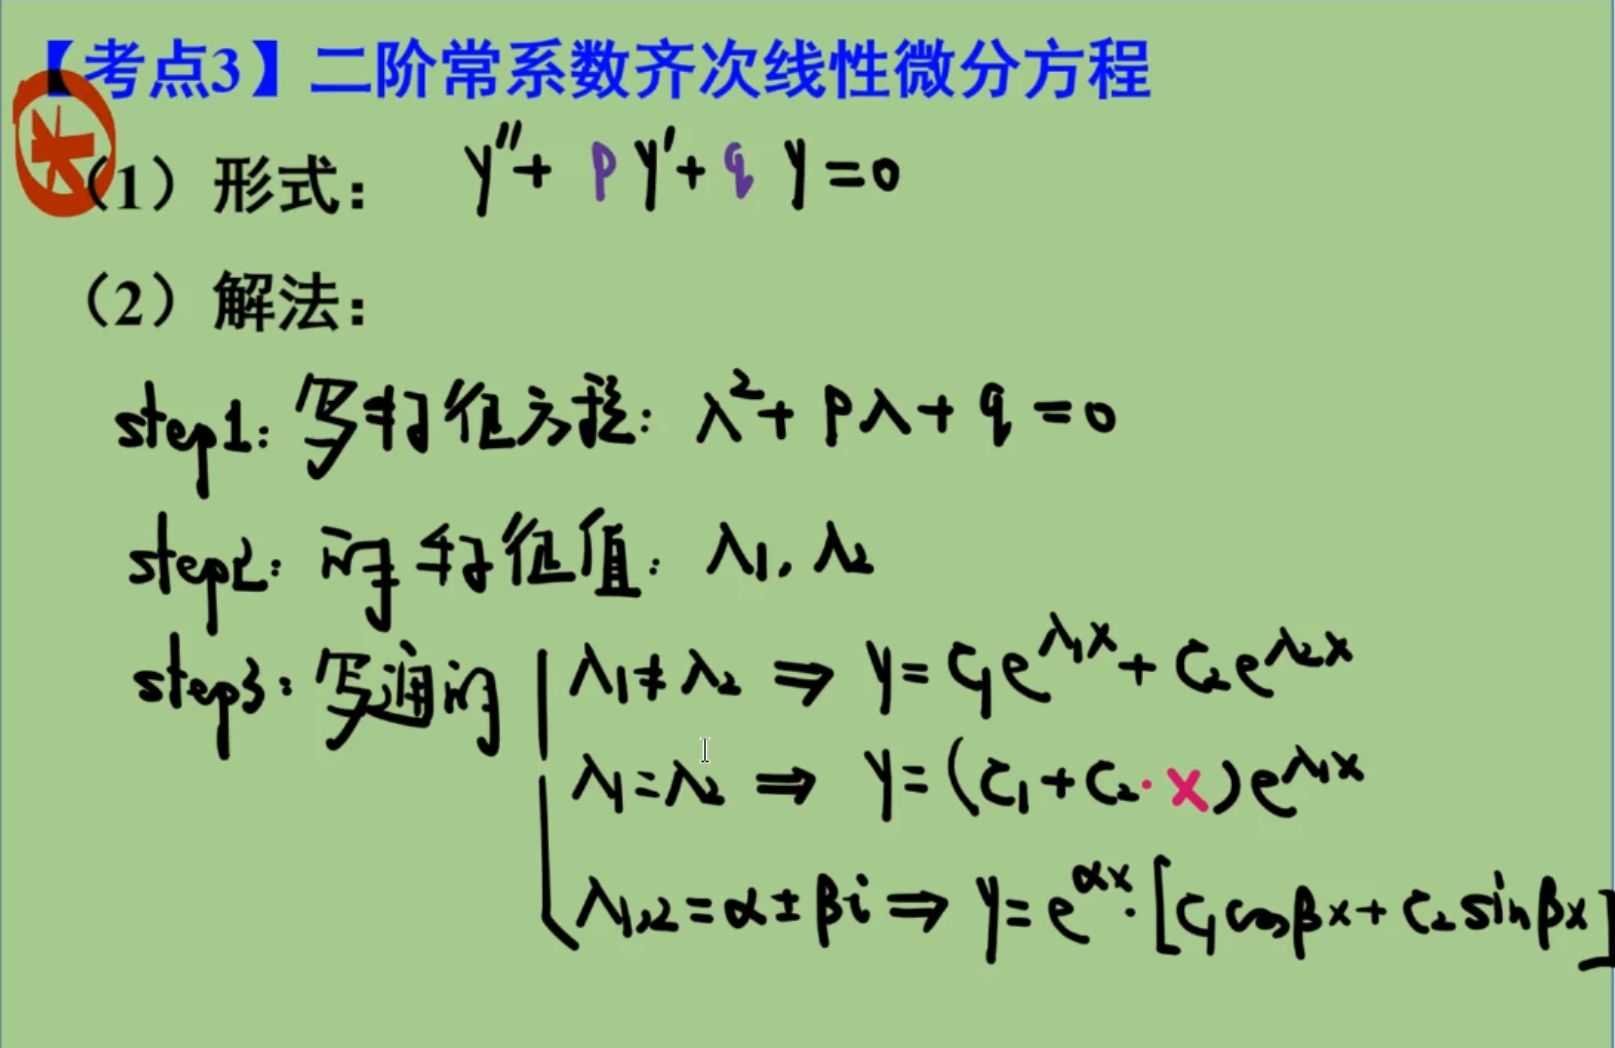 【考点3】二阶常系数齐次线性微分方程
(1) 形式： y''+ p y'+ q y = 0
(2) 解法：
step1: 写特征方程: λ²+ pλ + q = 0
step2: 解特征值: λ1, λ2
step3: 写通解
λ1 ≠ λ2 ⇒ y = C1e^λ1x + C2e^λ2x
λ1 = λ2 ⇒ y = (C1 + C2·x)e^λ1x
λ1,2 = α ± βi ⇒ y = e^αx·[C1cosβx + C2sinβx]